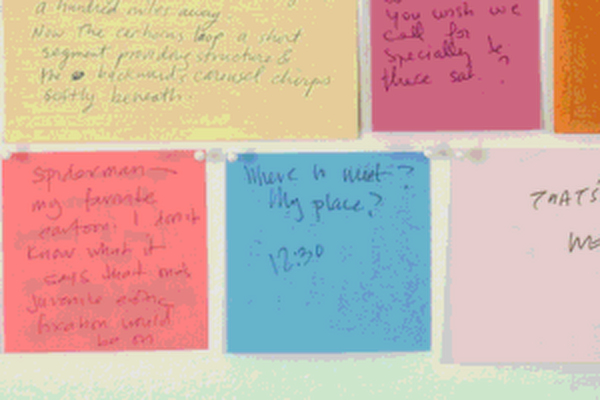 a hundred miles away
Now the cartoons loop a short
segment providing structure &
the backwards carousel chirps
softly beneath.
you wish we
call for
specially be
these sat. ?
Spiderman —
my favorite
cartoon! I don't
know what it
says that one's
juvenile erotic
fixation would
be on
Where to meet?
My place?
12:30
THAT'S